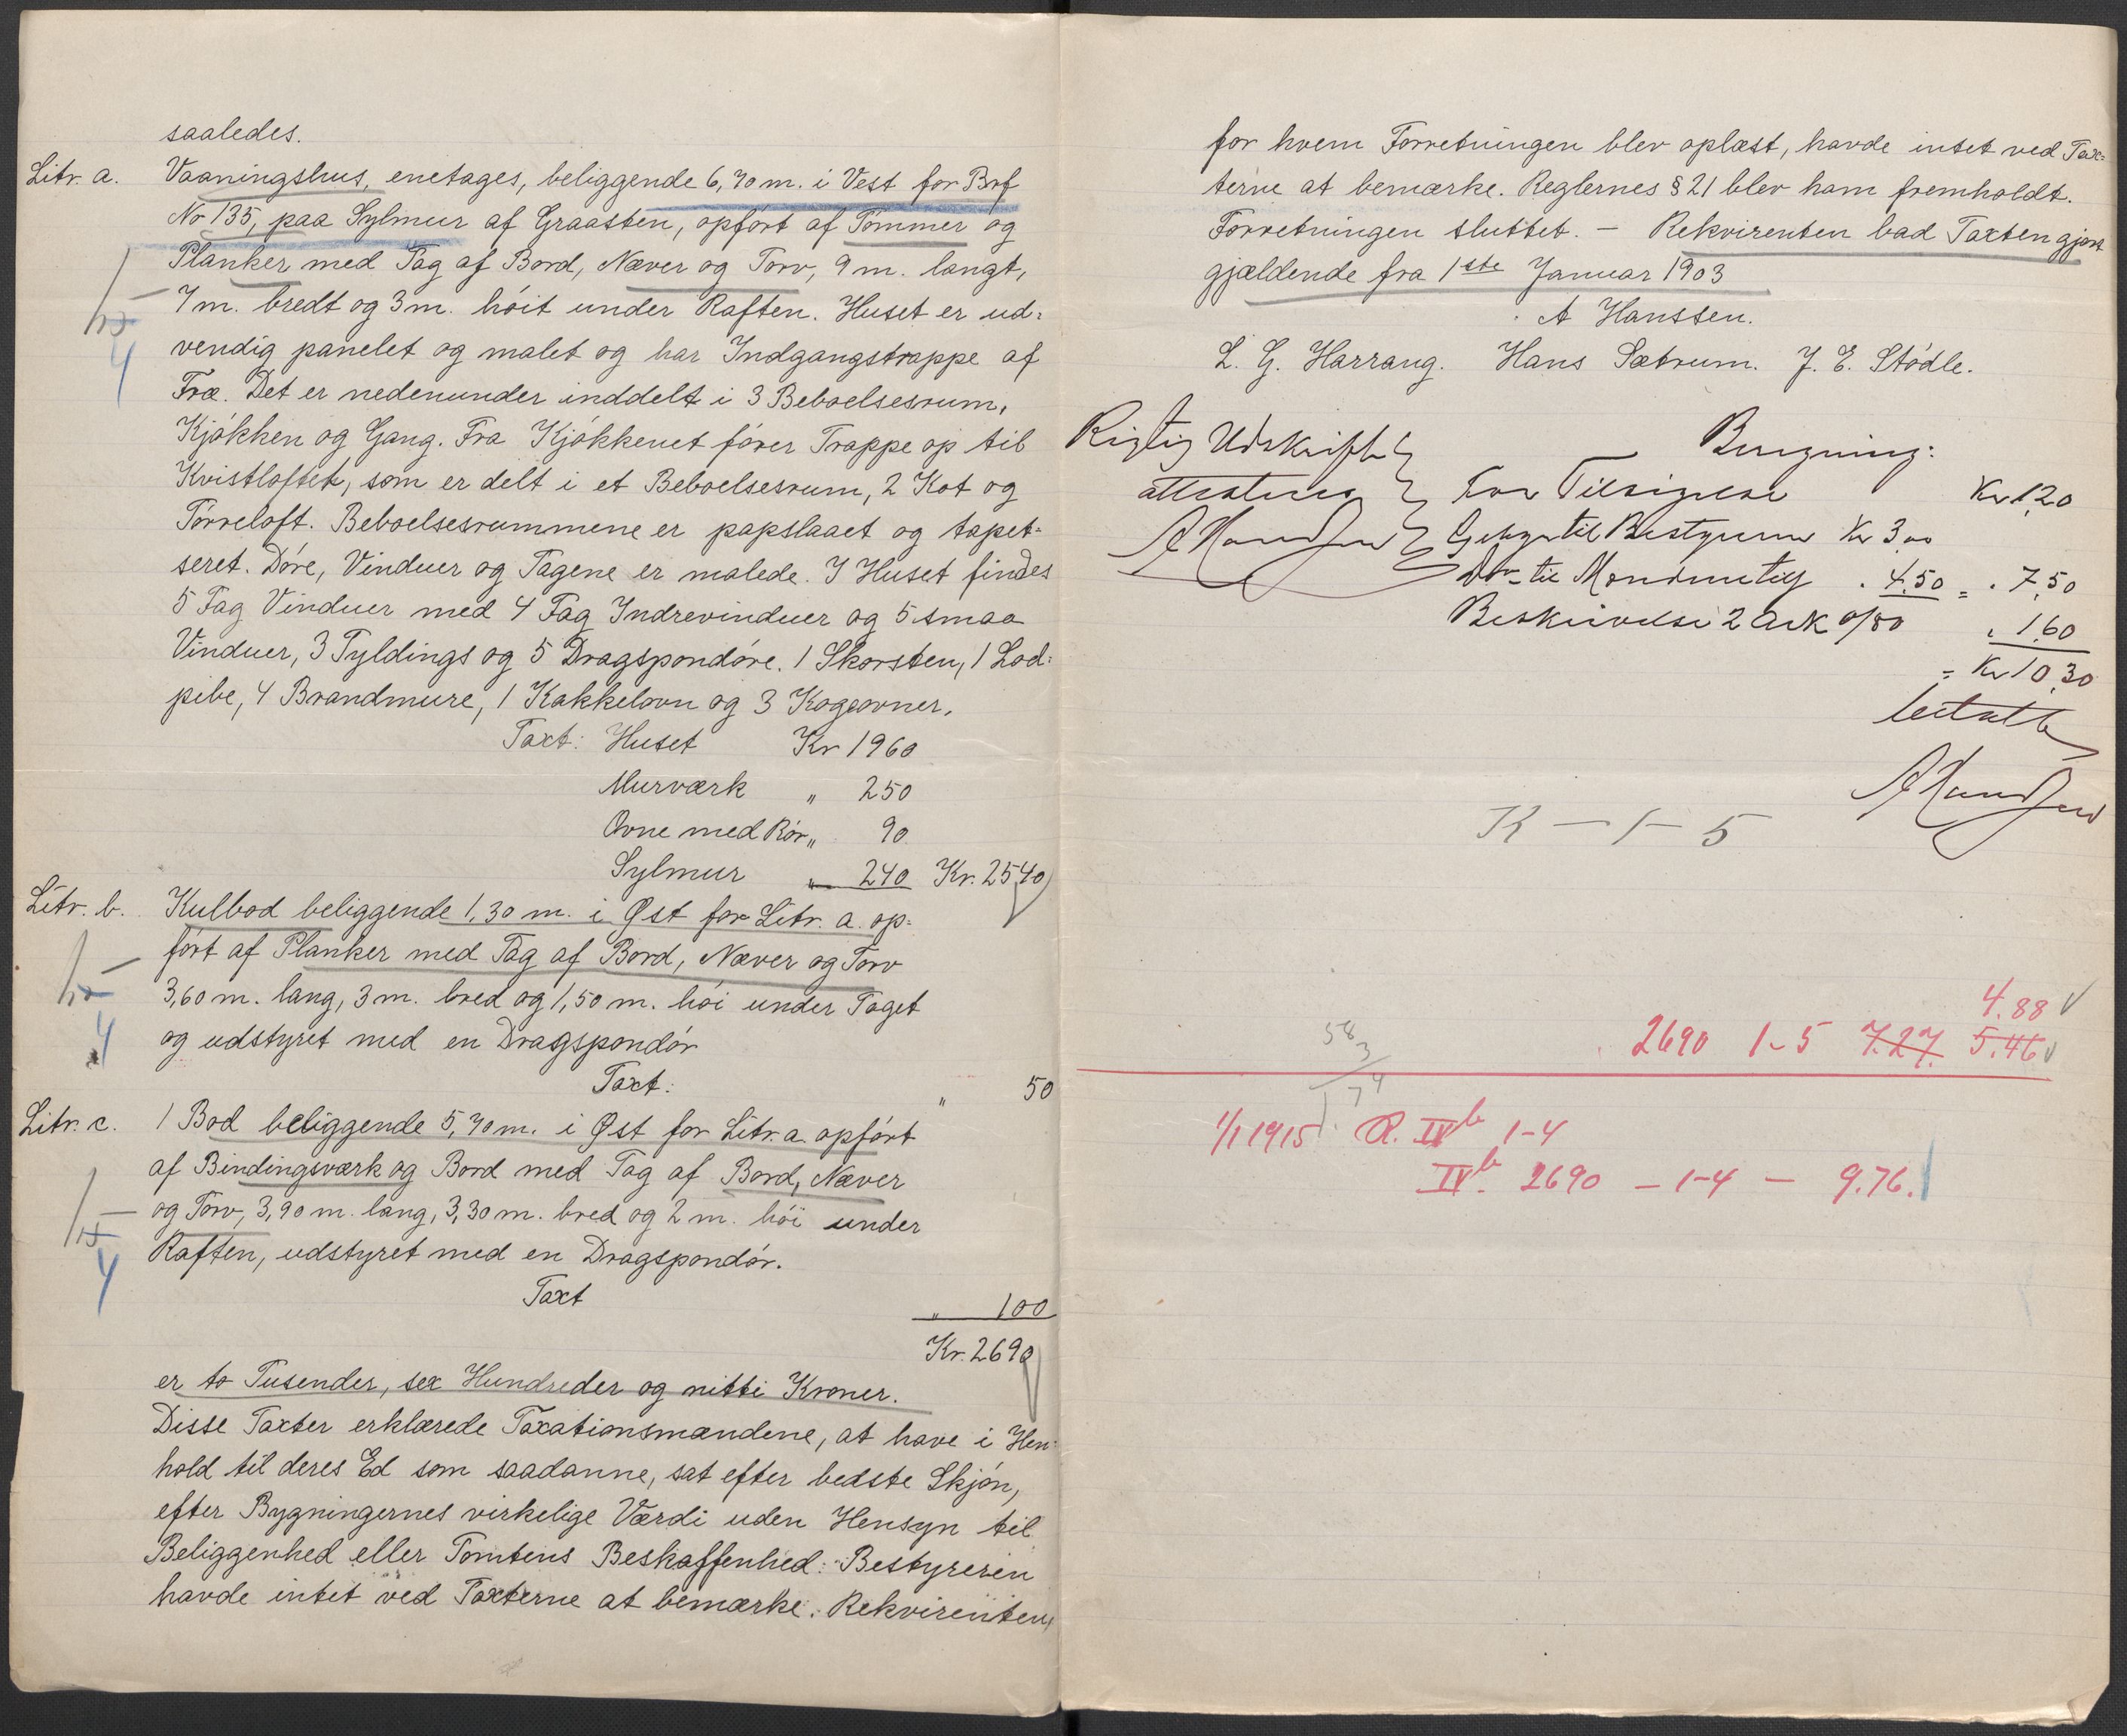 saaledes.
Litr. a. Vaaningshus, enetages, beliggende 6,70 m. i Vest for Brf
No 135, paa Sylmur af Graasten, opført af Tømmer og
Planker med Tag af Bord, Næver og Torv, 9 m. langt,
7 m. bredt og 3 m. høit under Raften. Huset er ud-
vendig panelet og malet og har Indgangstrappe af
Træ. Det er nedenunder inddelt i 3 Beboelsesrum,
Kjøkken og Gang. Fra Kjøkkenet fører Trappe op til
Kvistloftet, som er delt i et Beboelsesrum, 2 Kot og
Tørreloft. Beboelsesrummene er papslaaet og tapet-
seret. Døre, Vinduer og Tagene er malede. I Huset findes
5 Fag Vinduer med 4 Fag Indrevinduer og 5 smaa
Vinduer, 3 Fyldings og 5 Dragspondøre. 1 Skorsten, 1 Lod-
pibe, 4 Brandmure, 1 Kakkelovn og 3 Kogeovner.
Taxt: Huset Kr 1960
Murværk " 250
Ovne med Rør " 90
Sylmur " 240 Kr. 2540
Litr. b. Kulbod beliggende 1,30 m. i Øst for Litr. a. op-
ført af Planker med Tag af Bord, Næver og Torv
3,60 m. lang, 3 m. bred og 1,50 m. høi under Taget
4
og udstyret med en Dragspondør
Taxt: " 50
Litr. c. 1 Bod beliggende 5,70 m. i Øst for Litr. a. opført
af Bindingsværk og Bord med Tag af Bord, Næver
og Torv, 3,90 m. lang, 3,30 m. bred og 2 m. høi under
Raften, udstyret med en Dragspondør.
4
Taxt " 100
Kr. 2690
er to Tusender, sex Hundreder og nitti Kroner.
Disse Taxter erklærede Taxationsmændene, at have i Hen-
hold til deres Ed som saadanne, sat efter bedste Skjøn,
efter Bygningernes virkelige Værdi uden Hensyn til
Beliggenhed eller Tomtens Beskaffenhed. Bestyreren
havde intet ved Taxterne at bemærke. Rekvirenten,
for hvem Forretningen blev oplæst, havde intet ved Tax-
terne at bemærke. Reglernes § 21 blev ham fremholdt.
Forretningen sluttet. — Rekvirenten bad Taxten gjort
gjældende fra 1ste Januar 1903
A Hanssen.
L. G. Harrang. Hans Sætrum. J. E. Stødle.
Rigtig Udskrift
attesteres
AHanssen
Beregning:
For Tilsigelse Kr 1,20
Gebyr til Bestyreren Kr 3,00
Do til Mændene " 4,50 = " 7,50
Beskrivelse 2 Ark a/80 " 1,60
= Kr 10,30
betalt
AHanssen
K — 1 — 5
4.88
2690 1-5 7.27. 5.46
58
3
174
1/1 1915. R. IVb 1-4
IVb 2690 — 1-4 — 9.76.